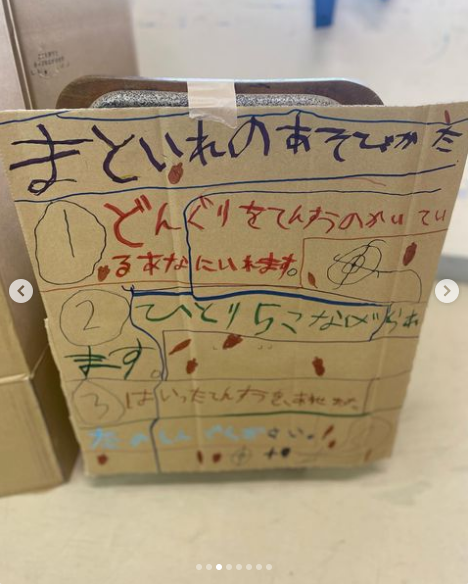 まといれのあそびかた
1 どんぐりをてんすうのかいてい
るあなにいれます。
2 ひとり5こなげられ
ます。
3 はいったてんすうを、
たのしんでください。